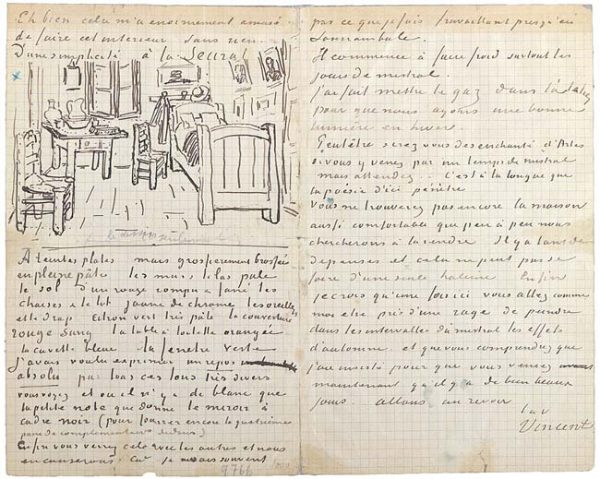 Eh bien cela m'a enormement amusé
de faire cet interieur sans rien
D'une simplicité à la Seurat
A teintes plates mais grossierement brossées
en pleine pâte les murs lilas pale
le sol d'un rouge rompu & fané les
chaises & le lit jaune de chrome les oreillers
et le drap citron vert très pâle la couverture
rouge sang la table à toilette orangée
la cuvette bleue la fenetre verte
J'avais voulu exprimer un repos
absolu par tous ces tons très divers
vous voyez et ou il n'y a de blanc que
la petite note que donne le miroir à
cadre noir (pour fourrer encore la quatrième
paire de complementaires dedans)
Enfin vous verrez cela avec les autres et nous
en causerons Car je ne sais souvent
9766
pas ce que je fais travaillant presqu'en
somnambule.
Il commence à faire froid surtout les
jours de mistral.
J'ai fait mettre le gaz dans l'atelier
pour que nous ayons une bonne
lumière en hiver.
Peutêtre serez vous desenchanté d'Arles
si vous y venez par un temps de mistral
mais attendez.. C'est à la longue que
la poésie d'ici pénètre
Vous ne trouverez pas encore la maison
aussi comfortable que peu à peu nous
chercherons à la rendre Il y a tant de
depenses et cela ne peut pas se
faire d'une seule haleine Enfin
je crois qu'une fois ici vous allez comme
moi etre pris d'une rage de peindre
dans les intervalles du mistral les effets
d'automne et que vous comprendrez que
j'ai insisté pour que vous veniez
maintenant qu'il y a de bien beaux
jours. allons, au revoir
t. à v.
Vincent.